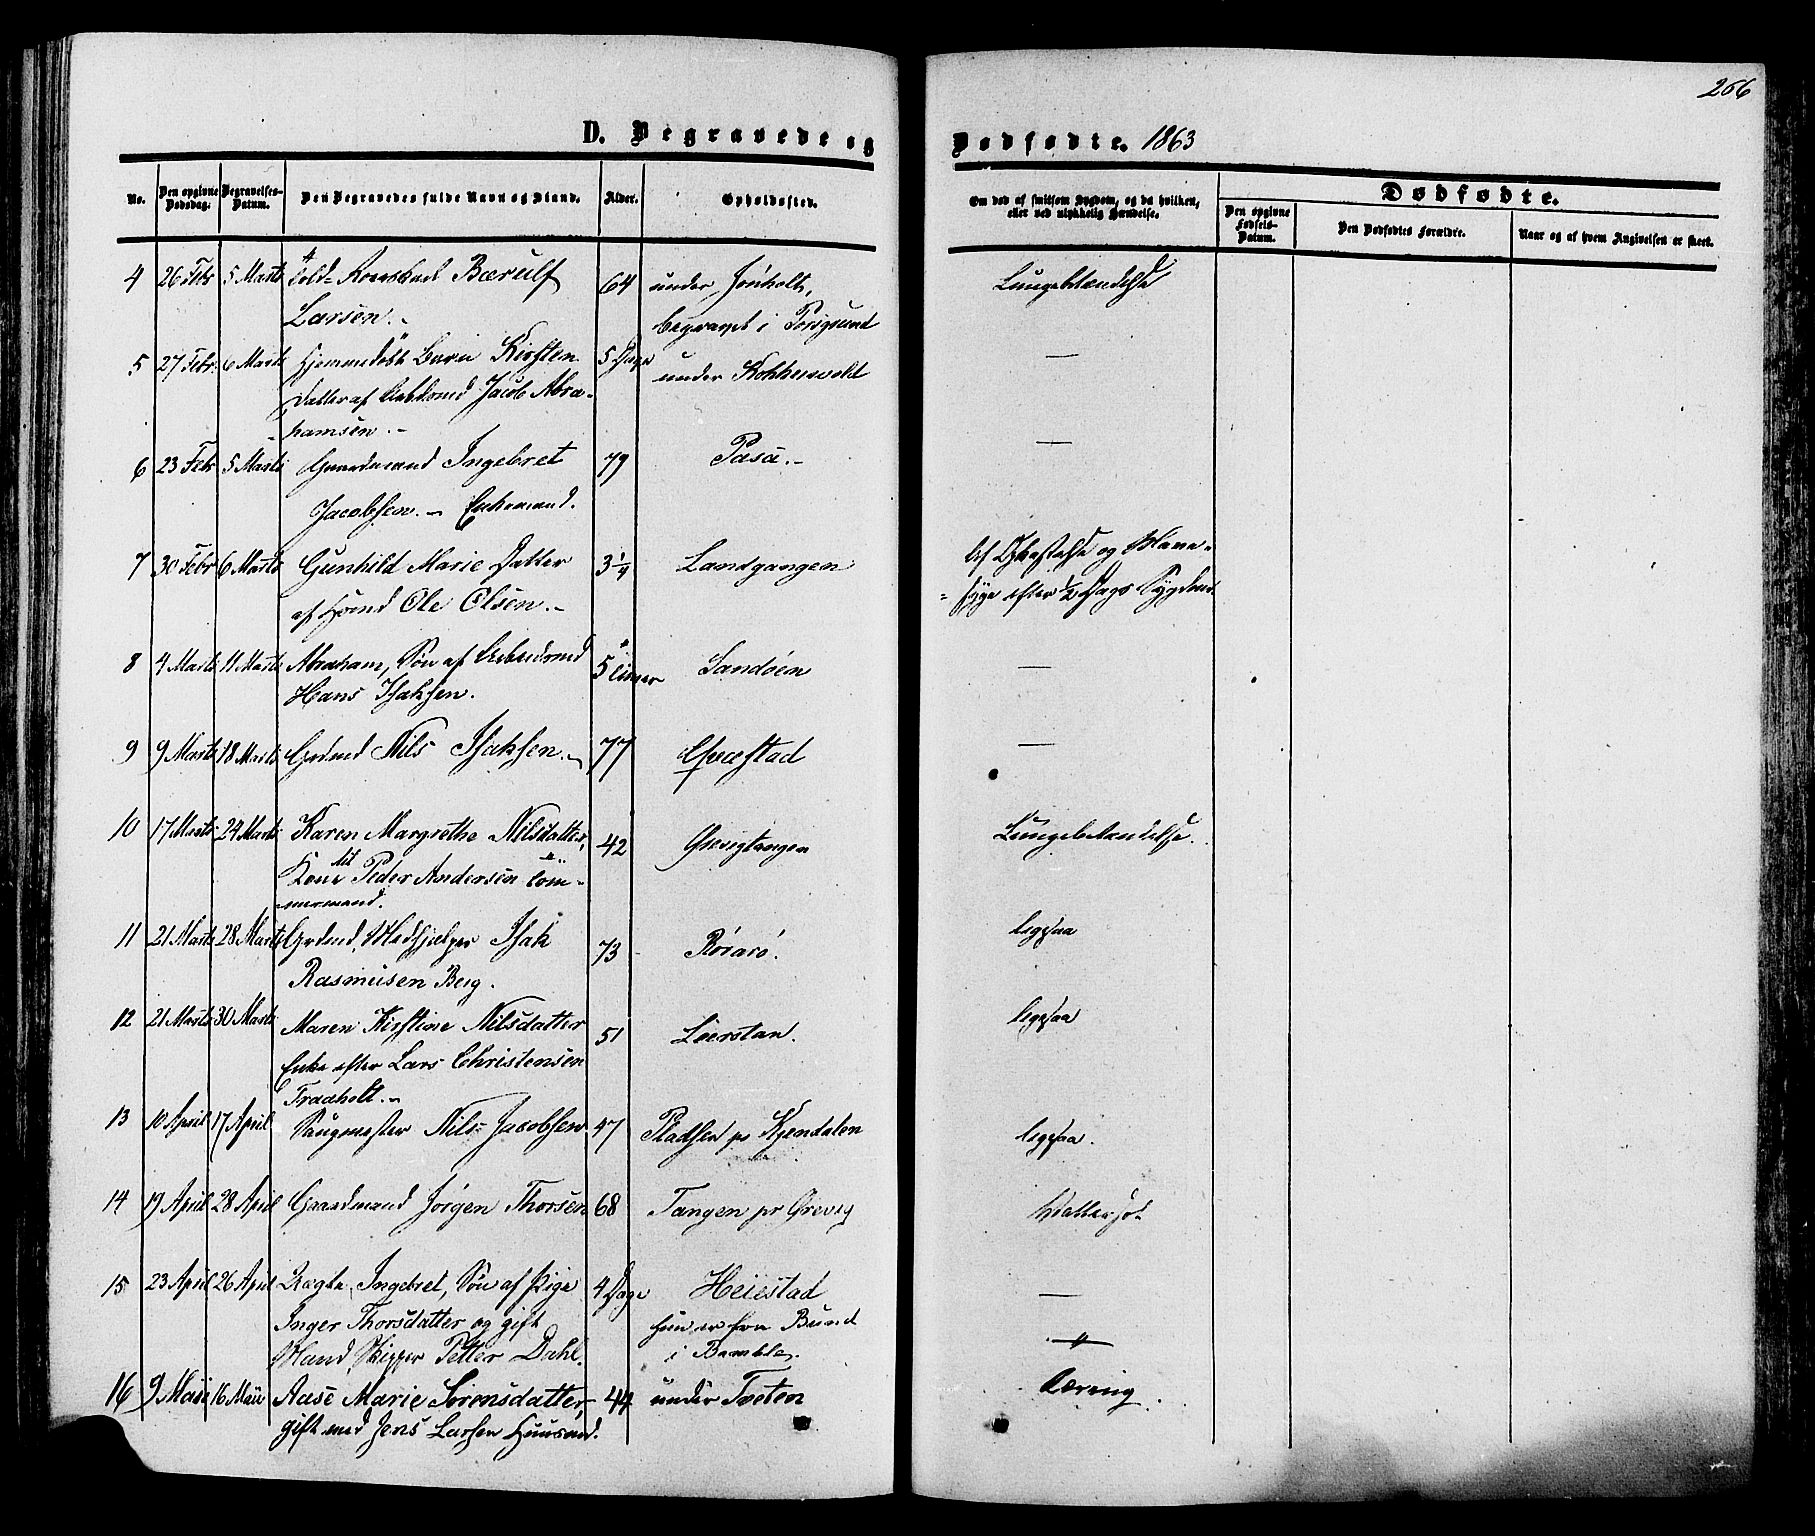 266
D. Begravede og Dødfødte. 1863
No. Den opgivne Dødsdag. Begravelses-Datum. Den Begravedes fulde Navn og Stand. Alder. Opholdssted. Om død af smitsom Sygdom, og da hvilken, eller ved ulykkelig Hændelse. Dødfødte.
Den opgivne Fødsels-Datum. Den Dødfødtes Forældre. Naar og af hvem Angivelsen er skeet.
4 26 Febr 5 Marts Told- Bærulf 64 under Jönholt, Lungebetændelse
Larsen.- begravet i Porsgrund
5 27 Febr. 6 Marts Hjemmedöbt Barn Kirsten 5 Dage under Kokkersvold —
Datter af Arbdsmd Jacob Abra-
-hamsen.-
6 23 Febr 5 Marts Gaardmand Ingebret 79 Pasa.- —
Jacobsen.- Enkemand.
7 30 Febr 6 Marts Gunhild Marie Datter 3 1/4 Landgangen af og
af Hsmd Ole Olsen.- syge efter 1/2 Dags Sygdom
8 4 Marts 11 Marts Abraham, Sön af Arbeidsmd 5 Timer Sandöen —
Hans Isaksen.
9 9 Marts 18 Marts Grdmd Nils Isaksen.- 77 Qvæstad —
10 17 Marts 24 Marts Karen Margrethe Nilsdatter, 42 Grevigtangen Lungebetændelse.
Kone til Peder Andersen Töm-
-mermand.
11 21 Marts 28 Marts Grdmd, Medhjelper Isak 73 ligesaa
Rasmusen Berg.
12 21 Marts 30 Marts Maren Kirstine Nilsdatter 51 Leerstan. ligesaa
Enke efter Lars Christensen
Traaholt.-
13 10 April 17 April Saugmester Nils Jacobsen 47 Pladsen pr Kjendalen ligesaa.
14 19 April 28 April Gaardmand Jörgen Thorsen 68 Tangen pr Grevig Vattersot
15 23 April 26 April Uægte, Ingebret, Sön af Pige 4 Dage Heiestad —
Inger Thorsdatter og gift hun er fra Bund
Mand, Skipper Petter Dahl. i Bamble.
16 9 Maii 16 Maii Aase Marie Sörensdatter, 44 under Tveten Tæring.
gift med Jens Larsen Huusmd.